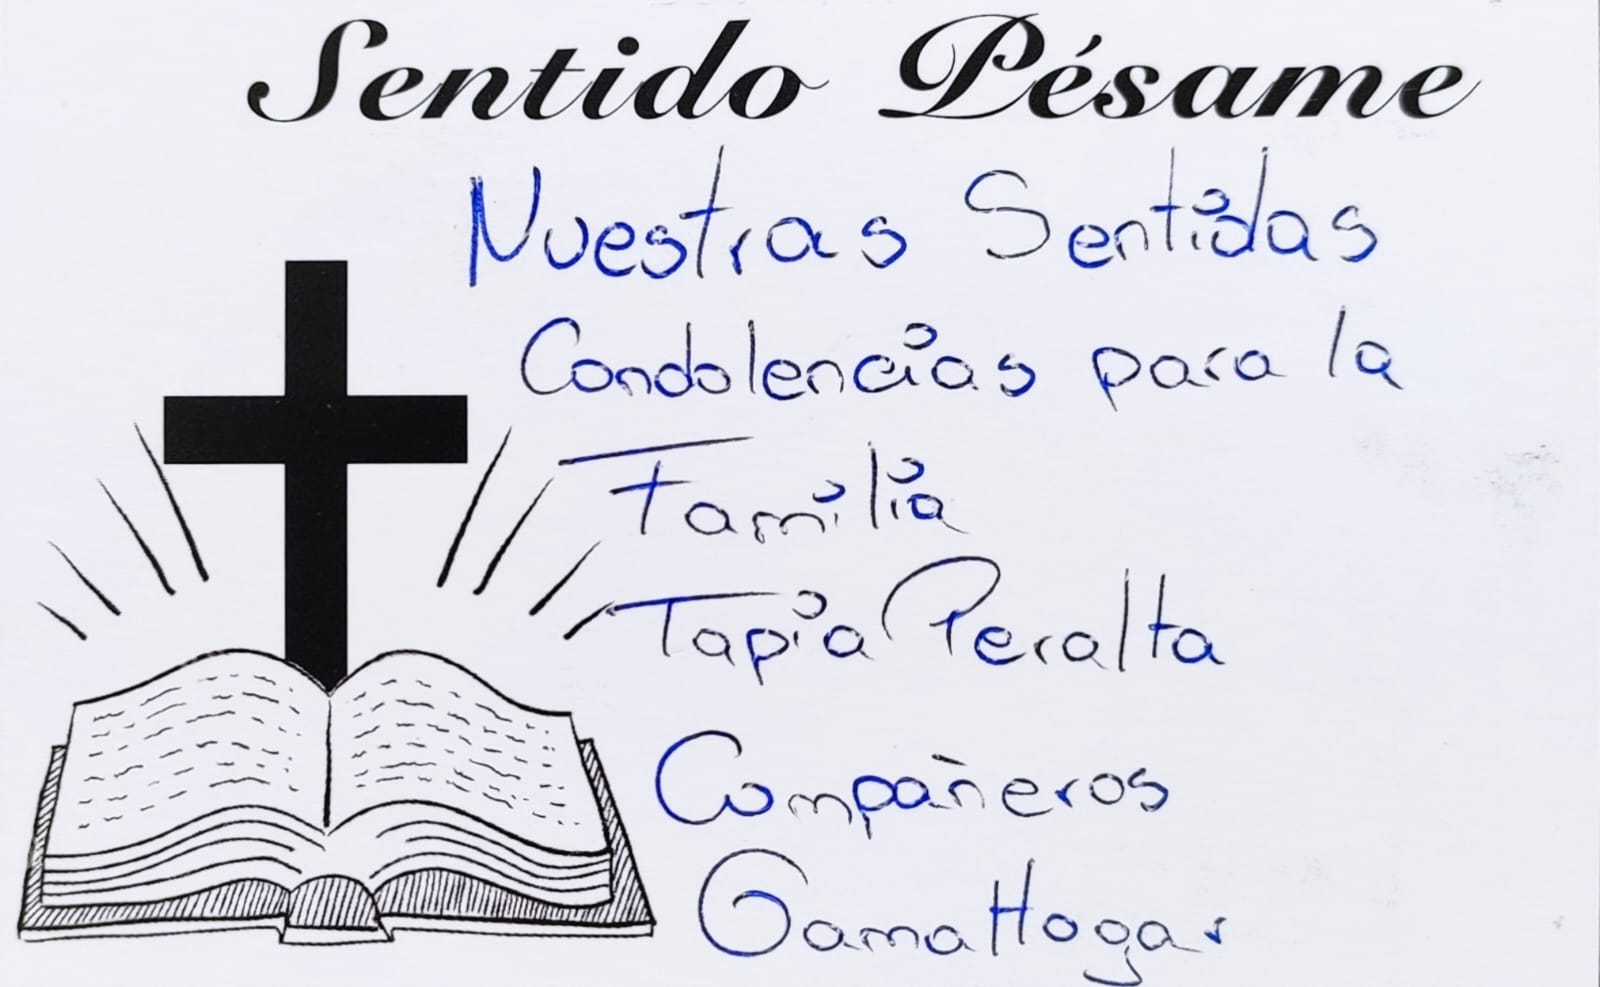 Sentido Pésame
Nuestras Sentidas
Condolencias para la
Familia
Tapia Peralta
Compañeros
Gama Hogar